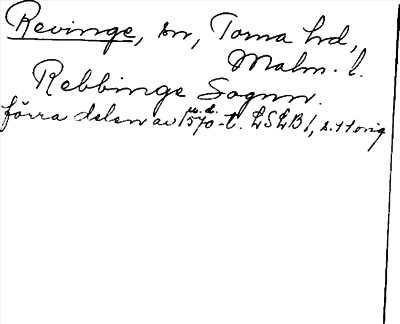 Revinge, sn, Torna hd,
Malm. l.
Rebbinge Sognn.
u. d.
förra delen av 1570-t. LSLB1, s. 11 orig